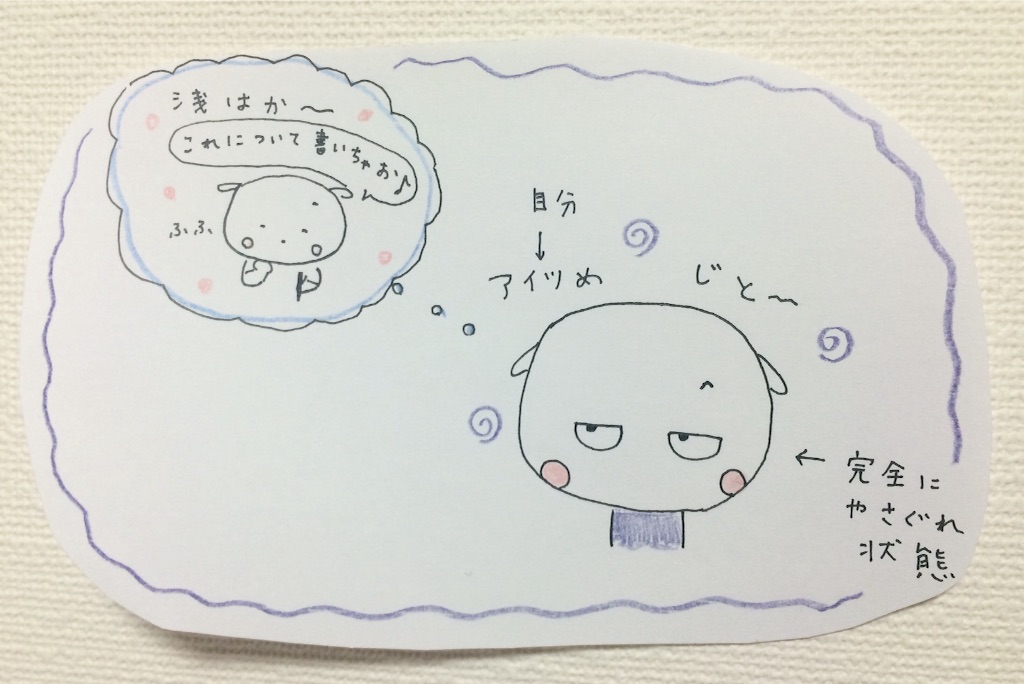 浅はか〜
これについて書いちゃお♪
ふふ
自分
↓
アイツめ
じと〜
← 完全に
やさぐれ
状態